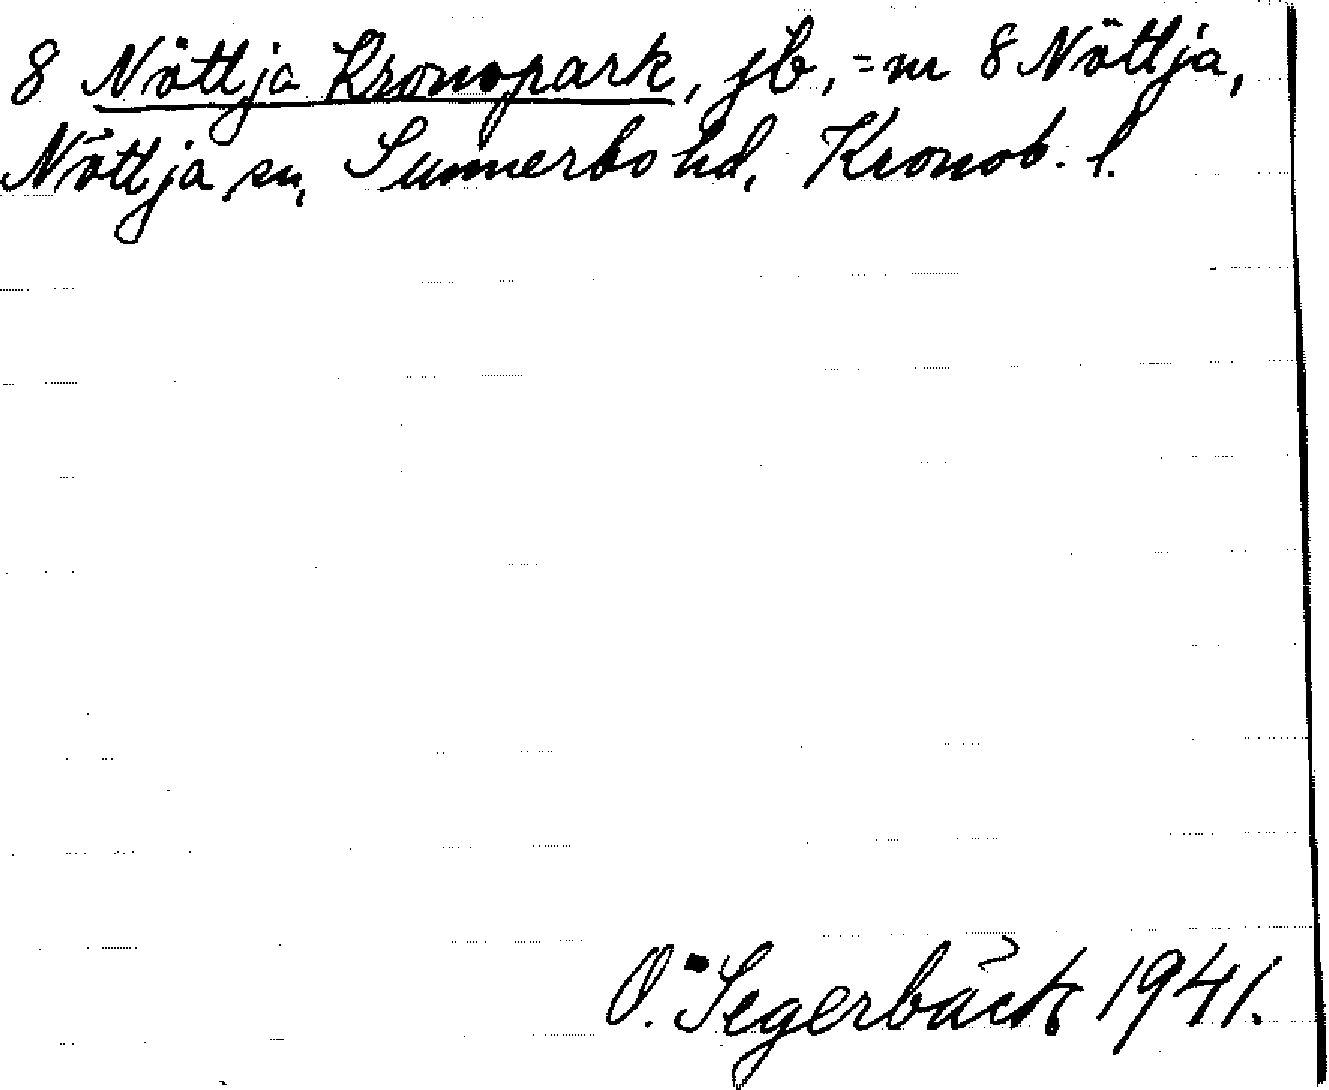 8 Nöttja Kronopark, jb, = nr 8 Nöttja,
Nöttja sn, Sunnerbo hd, Kronob. l.
O. Segerbäck 1941.